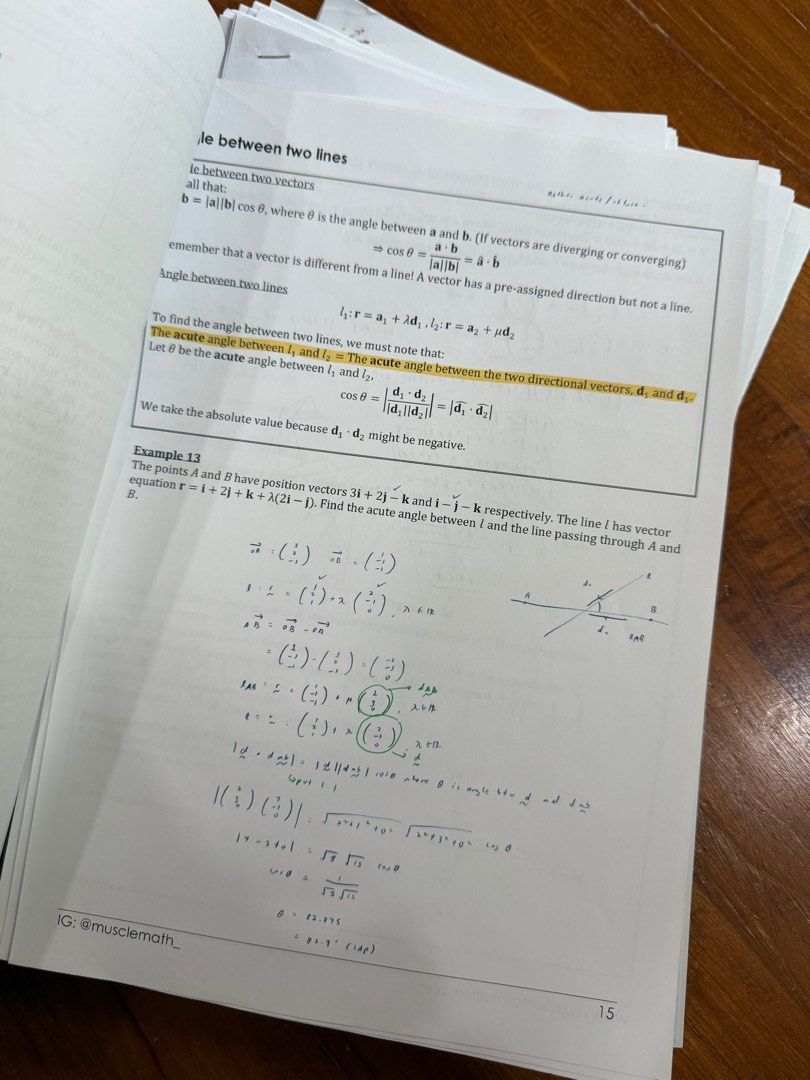 le between two lines
le between two vectors
all that:
b = |a||b| cos θ, where θ is the angle between a and b. (If vectors are diverging or converging)
⇒ cos θ = a · b / |a||b| = â · b̂
emember that a vector is different from a line! A vector has a pre-assigned direction but not a line.
Angle between two lines
l₁: r = a₁ + λd₁ , l₂: r = a₂ + μd₂
To find the angle between two lines, we must note that:
The acute angle between l₁ and l₂ = The acute angle between the two directional vectors, d₁ and d₁.
Let θ be the acute angle between l₁ and l₂,
cos θ = |d₁ · d₂ / |d₁||d₂|| = |d̂₁ · d̂₂|
We take the absolute value because d₁ · d₂ might be negative.
Example 13
The points A and B have position vectors 3i + 2j − k and i − j − k respectively. The line l has vector
equation r = i + 2j + k + λ(2i − j). Find the acute angle between l and the line passing through A and
B.
OA = (3 2 -1) OB = (1 -1 -1)
l : r = (1 2 1) + λ (2 -1 0), λ ∈ ℝ
AB = OB - OA
= (1 -1 -1) - (3 2 -1) = (-2 -3 0)
A B l
l AB
l AB : r = (1 -1 -1) + μ (2 3 0), λ ∈ ℝ
d AB
l : r = (1 2 1) + λ (2 -1 0), λ ∈ ℝ
d
|d · d AB| = |d||d AB| cos θ where θ is angle btw d and d AB
input | |
|(2 3 0) (2 -1 0)| = √2²+1²+0² √2²+3²+0² cos θ
|4 - 3 + 0| = √5 √13 cos θ
cos θ = 1 / √5 √13
θ = 82.875
= 82.9° (1dp)
IG: @musclemath_
15